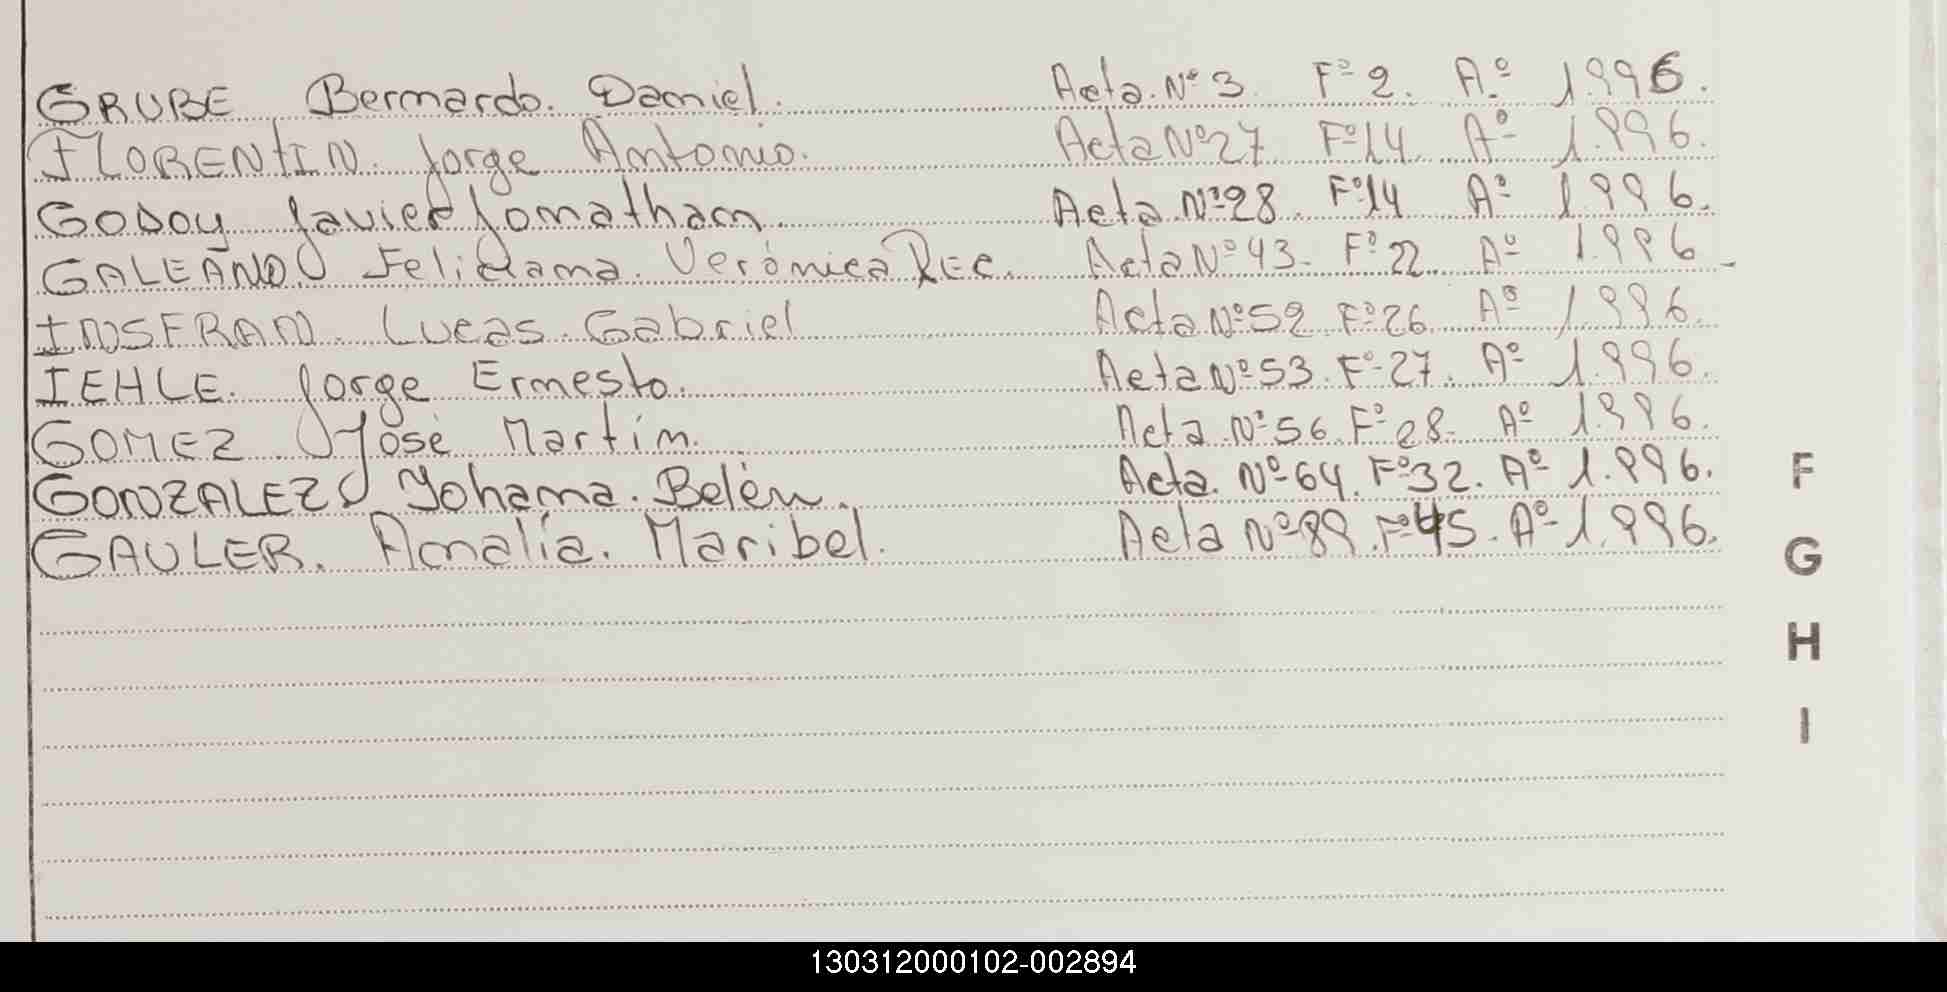 GRUBE Bernardo. Daniel. Acta. Nº 3 Fº 2. Aº 1.996.
FLORENTIN. Jorge Antonio. Acta Nº 27 Fº 14 Aº 1.996.
GODOY Javier Jonathan. Acta Nº 28. Fº 14 Aº 1.996.
GALEANO Feliciana. Verónica Rec. Acta Nº 43. Fº 22. Aº 1.996
INSFRAN. Lucas. Gabriel Acta Nº 52 Fº 26 Aº 1.996.
IEHLE. Jorge Ernesto. Acta Nº 53. Fº 27. Aº 1.996.
GOMEZ José Martin. Acta Nº 56 Fº 28. Aº 1.996.
GONZALEZ Yohana. Belén. Acta. Nº 64. Fº 32. Aº 1.996.
GAULER. Analía. Maribel. Acta Nº 89. Fº 45. Aº 1.996.
F
G
H
I
130312000102-002894